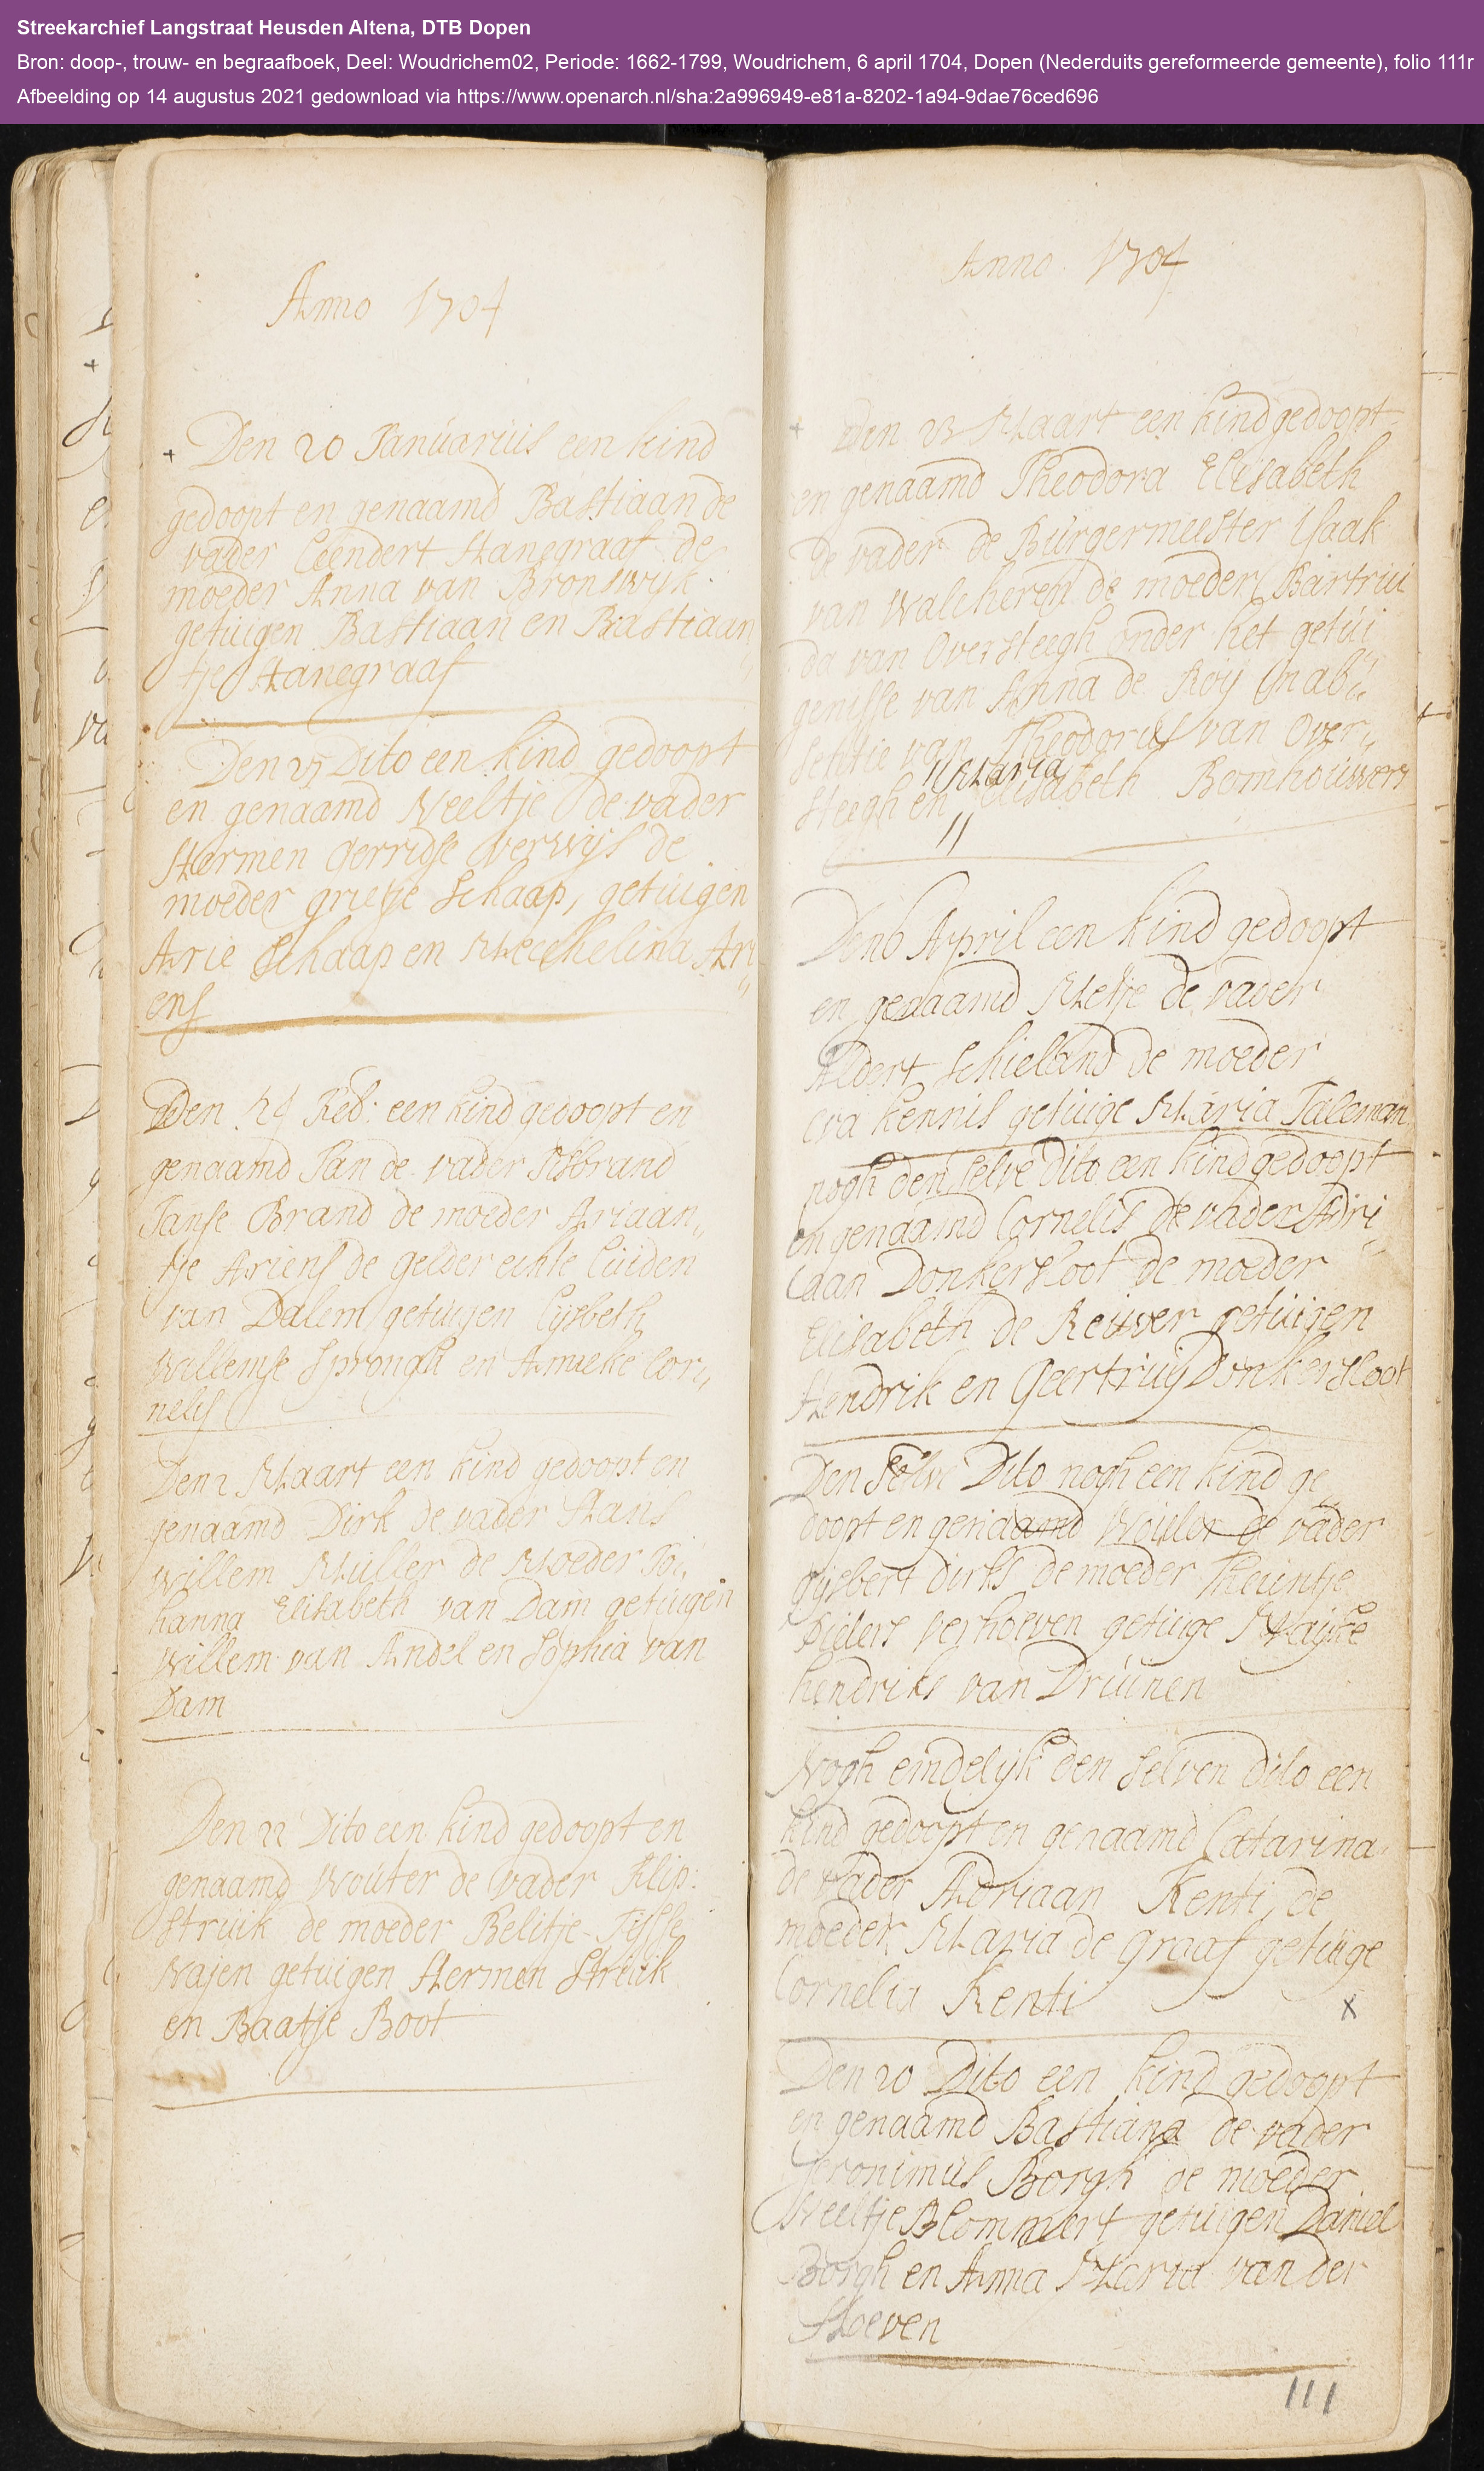 Streekarchief Langstraat Heusden Altena, DTB Dopen
Bron: doop-, trouw- en begraafboek, Deel: Woudrichem02, Periode: 1662-1799, Woudrichem, 6 april 1704, Dopen (Nederduits gereformeerde gemeente), folio 111r
Afbeelding op 14 augustus 2021 gedownload via https://www.openarch.nl/sha:2a996949-e81a-8202-1a94-9dae76ced696
Anno 1704
+ Den 20 Januarius een kind
gedoopt en genaamd Bastiaan de
vader Leendert Hanegraaf de
moeder Anna van Bronswyk
getuigen Bastiaan en Bastiaan
tje Hanegraaf
Den 25 Dito een kind gedoopt
en genaamd Neeltje de vader
Hermen Gerridse Verwijs de
moeder grietje Schaap, getuigen
Arie Schaap en Mechelina Ari
ens
Den 24 Feb: een kind gedoopt en
genaamd Jan de vader IJsbrand
Janse Brand de moeder Ariaan,,
tje Ariens de Gelder echte luiden
van Dalem getuigen Lijsbeth
Willemse Sprongh en Annieke Cor,,
nelis
Den 2 Maart een kind gedoopt en
genaamd Dirk de vader Hans
Willem Muller de Moeder Jo,,
hanna Elisabeth van Dam getuigen
Willem van Andel en Sophia van
Dam
Den 22 Dito een kind gedoopt en
genaamd Wouter de vader Flip:
Struik de moeder Belitje Tijsse
Najen getuigen Hermen Struik
en Baatje Boot
Anno 1704
+ Den 23 Maart een kind gedoopt
en genaamd Theodora Elisabeth
De vader de Burgermeester Isaak
van Walcheren de moeder Bartrui
da van Oversteegh onder het getui
genisse van Anna de Roy in ab,,
sentie van Theodorus van Over,,
Maria
steegh en Elisabeth Bomhouwers
Den 6 April een kind gedoopt
en genaamd Metje de vader
Aldert Schieland de moeder
Eva Kennis getuige Maria Taleman
nogh den selve Dito een kind gedoopt
en genaamd Cornelis de vader Adri
aan Donkersloot de moeder
Elisabeth de Reuver getuigen
Hendrik en Geertruij Donkersloot
Den Selve Dito nogh een kind ge
doopt en genaamd Wouter de vader
Gijsbert Dirks de moeder Theuntje
Pieters Verhoeven getuige Maijke
hendriks van Drunen
Nogh eindelyk den selven dito een
kind gedoopt en genaamd Catarina
de vader Adriaan Kenti, de
moeder Maria de Graaf getuige
Cornelia Kenti x
Den 20 Dito een kind gedoopt
en genaamd Bastiana de vader
Jeronimus Borgh de moeder
Neeltje Blommert getuigen Daniel
Borgh en Anna Maria van der
Hoeven
111